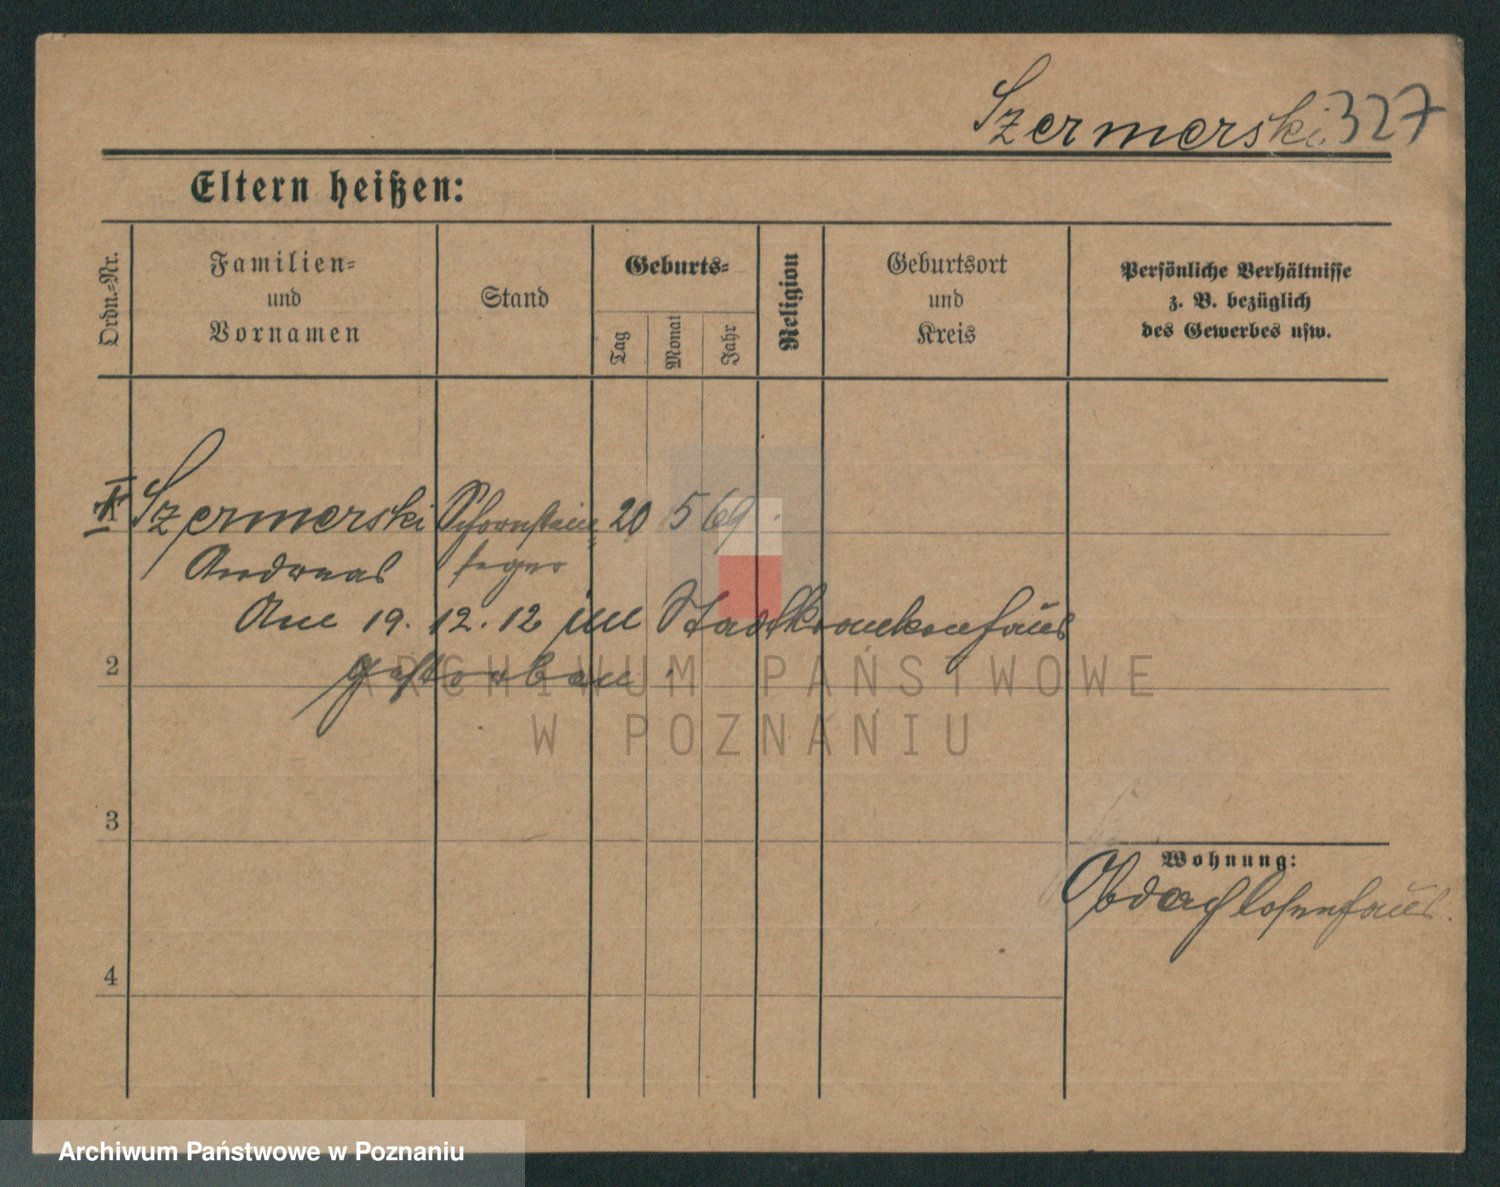 Szermerski 327
Eltern heißen:
Ordn.-Nr.
Familien-
und
Vornamen
Stand
Geburts-
Tag
Monat
Jahr
Religion
Geburtsort
und
Kreis
Persönliche Verhältnisse
z. B. bezüglich
des Gewerbes usw.
Szermerski Schornstein 20 5 69
Andreas feger
Am 19. 12. 12 im Stadtkrankenhaus
gestorben.
2
3
4
Wohnung:
Obdachlosenhaus.
ARCHIWUM PAŃSTWOWE
W POZNANIU
Archiwum Państwowe w Poznaniu